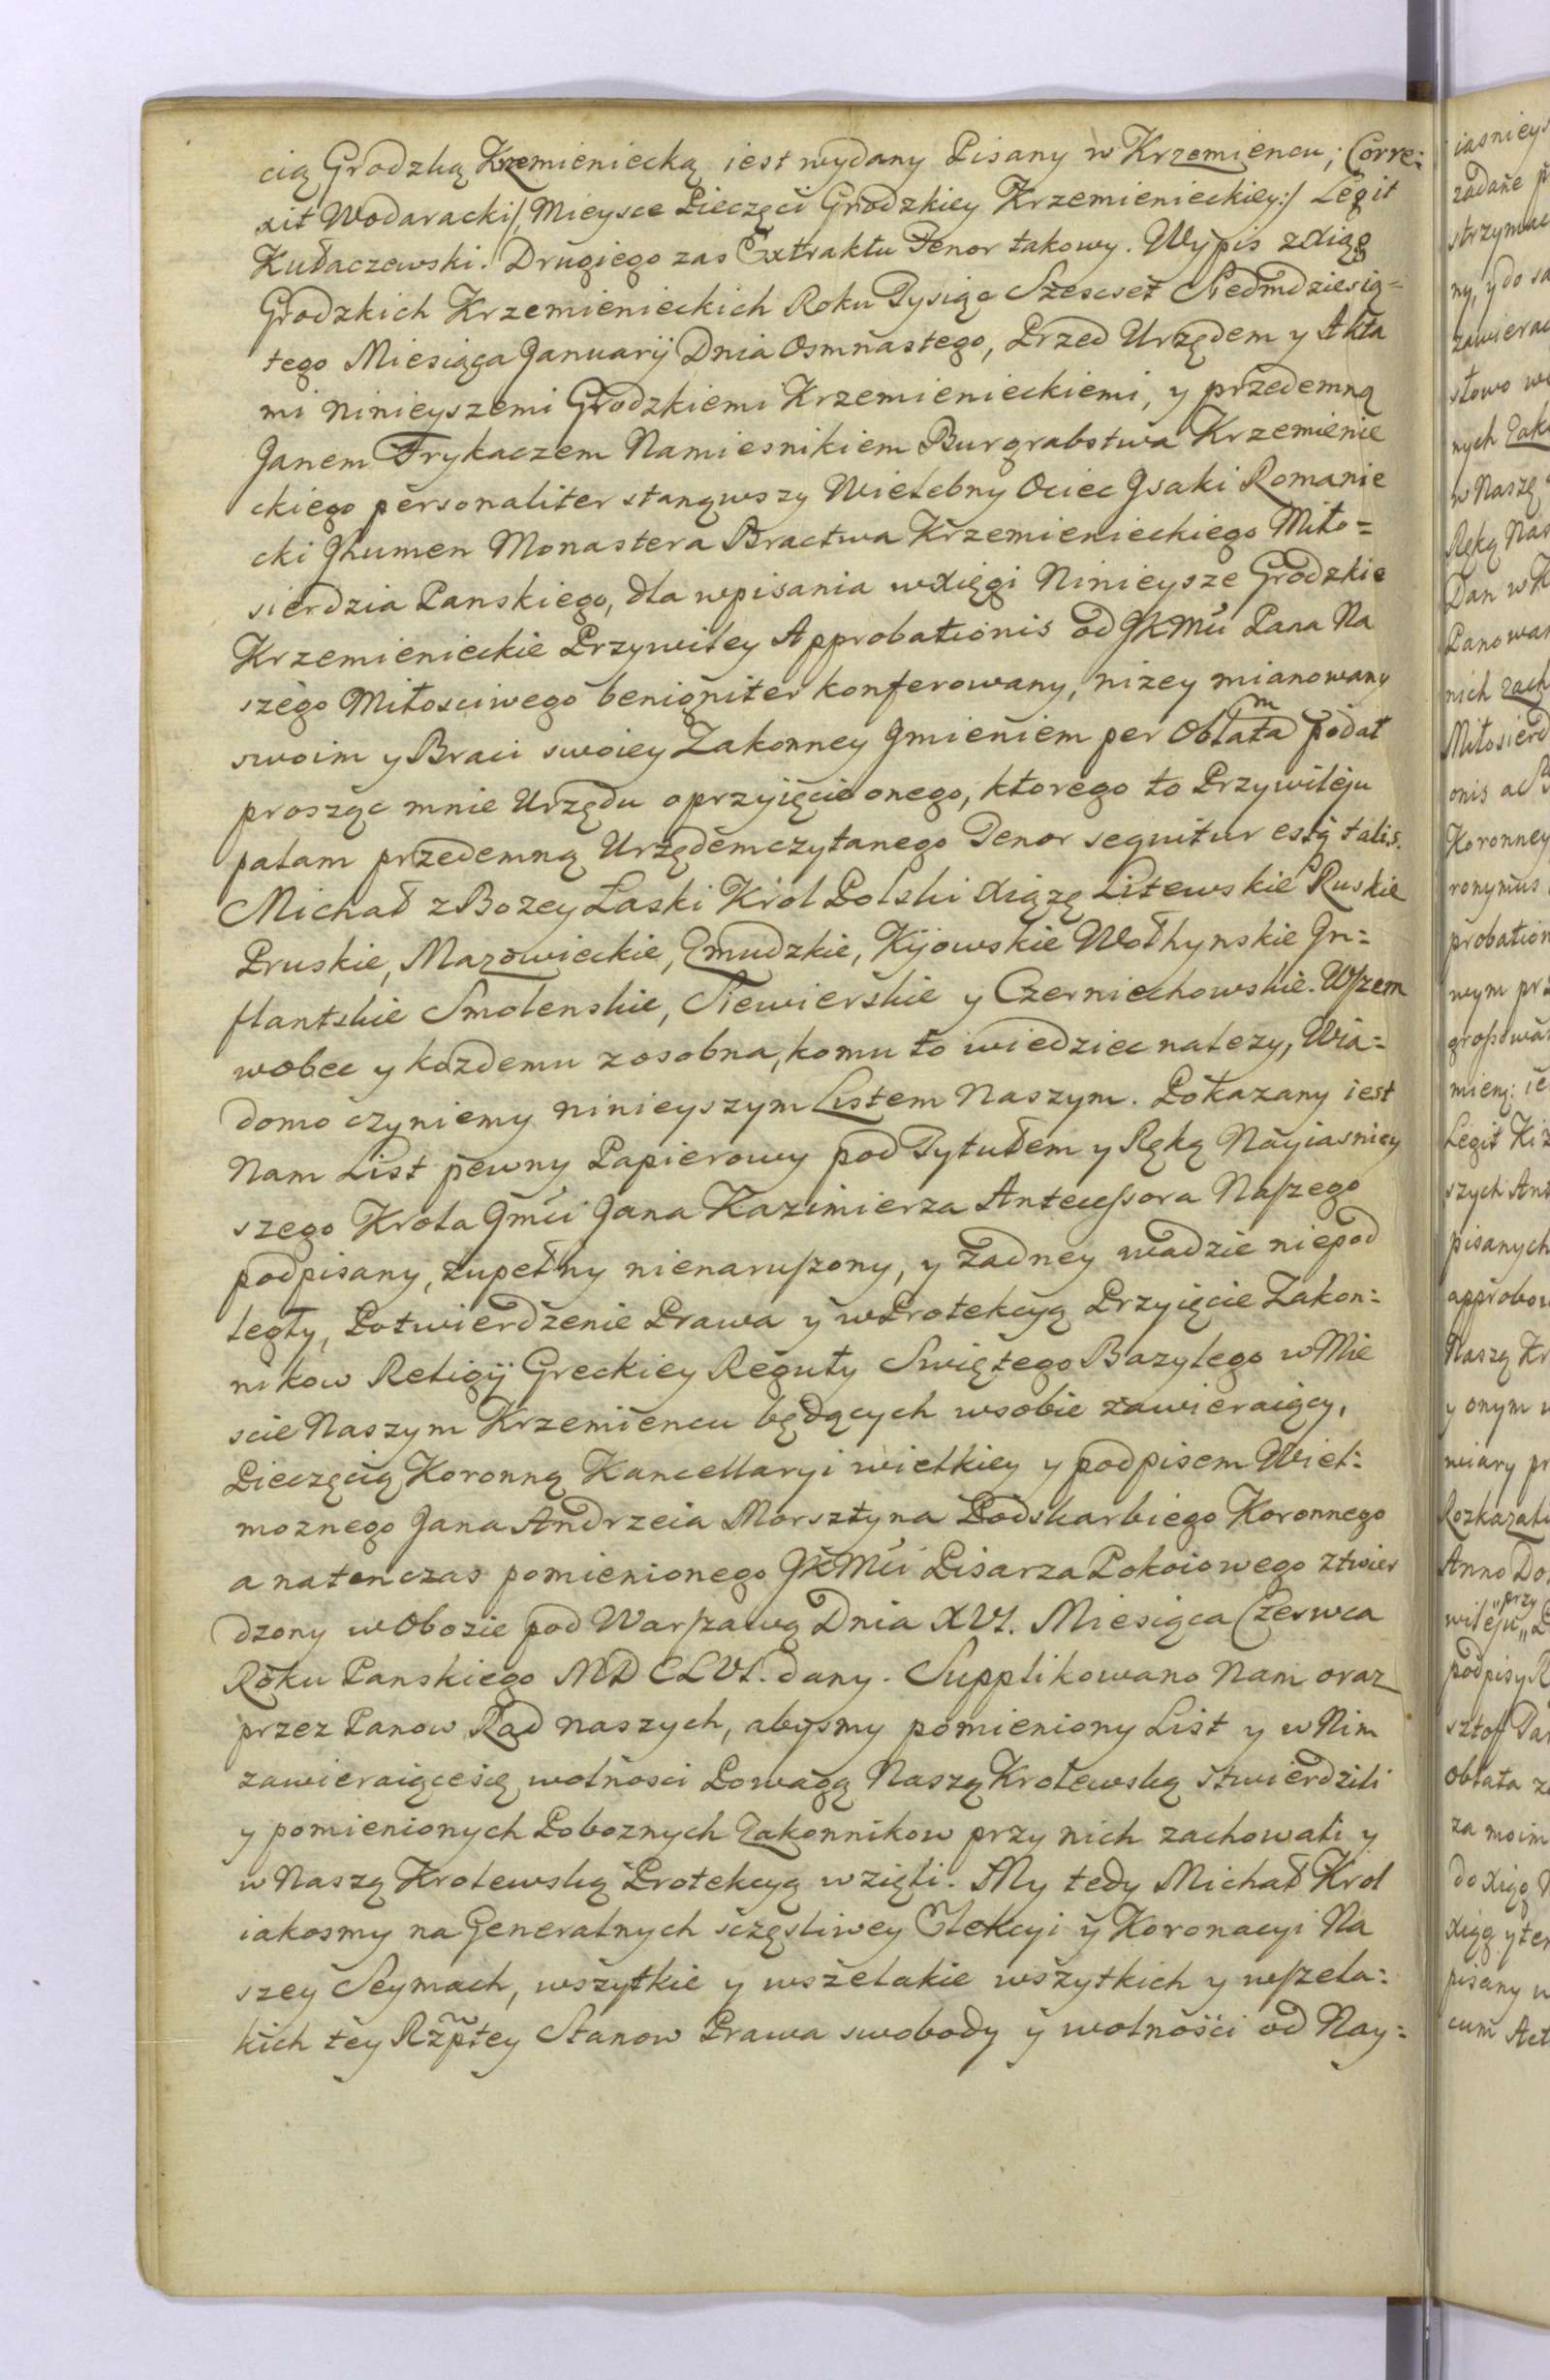 cią Grodzką Krzemieniecką iest wydany Pisany w Krzemiencu; Corre:
xit Wodaracki/, Mieysce Pieczęci Grodzkiey Krzemienieckiey:/ Legit
Kułaczewski. Drugiego zas Extraktu Tenor takowy. Wypis zXiąg
Grodzkich Krzemienieckich Roku Tysiąc Szescset Siedmdziesią=
tego Miesiąca Januarij Dnia Osmnastego, Przed Urzędem y Akta
mi ninieyszemi Grodzkiemi Krzemienieckiemi, y przedemną
Janem Frykaczem Namiesnikiem Burgrabstwa Krzemienie
ckiego personaliter stanąwszy Wielebny Ociec Jsaki Romanie
cki Jhumen Monastera Bractwa Krzemienieckiego Miło=
sierdzia Panskiego, dla wpisania wXięgi Ninieysze Grodzkie
Krzemienieckie Przywiley Approbationis od JKMci Pana Na
szego Miłosciwego benigniter konferowany, nizey mianowany
swoim y Braci swoiey Zakonney Jmieniem per Oblatam podał
prosząc mnie Urzędu o przyięcie onego, ktorego to Przywileju
palam przedemną Urzędem czytanego Tenor sequitur estq̃ talis.
Michał z Bozey Łaski Krol Polski Xiążę Litewskie Ruskie
Pruskie, Mazowieckie, Zmudzkie, Kijowskie Wołhynskie Jn=
flantskie Smolenskie, Siewierskie y Czerniechowskie. Wszem
wobec y kazdemu zosobna, komu to wiedziec nalezy, Wia=
domo czyniemy ninieyszym Listem Naszym. Pokazany iest
Nam List pewny Papierowy pod Tytułem y Ręką Nayiasniey
szego Krola Jmci Jana Kazimierza Antecessora Naszego
podpisany, zupełny nienaruszony, y żadney wadzie niepod
legły, Potwierdzenie Prawa y wProtekcyą Przyięcie Zakon=
nikow Religij Greckiey Reguły Swiętego Bazylego w Mie
scie Naszym Krzemiencu będących wsobie zawieraiący,
Pieczęcią Koronną Kancellaryi wielkiey y podpisem Wiel=
moznego Jana Andrzeia Morsztyna Podskarbiego Koronnego
a natenczas pomienionego JKMci Pisarza Pokoiowego ztwier
dzony w Obozie pod Warszawą Dnia XVI. Miesiąca Czerwca
Roku Panskiego MDCLVI. dany. Supplikowano Nam oraz
przez Panow Rad naszych, abysmy pomieniony List y w Nim
zawieraiącesię wolnosci Powagą Naszą Krolewską stwierdzili
y pomienionych Poboznych Zakonnikow przy nich zachowali y
w Naszą Krolewską Protekcyą wzięli. My tedy Michał Krol
iakosmy na Generalnych sczęsliwey Elekcyi y Koronacyi Na
szey Seymach, wszytkie y wszelakie wszytkich y wszela=
kich tey Rzptey Stanow Prawa swobody y wolnosci od Nay=